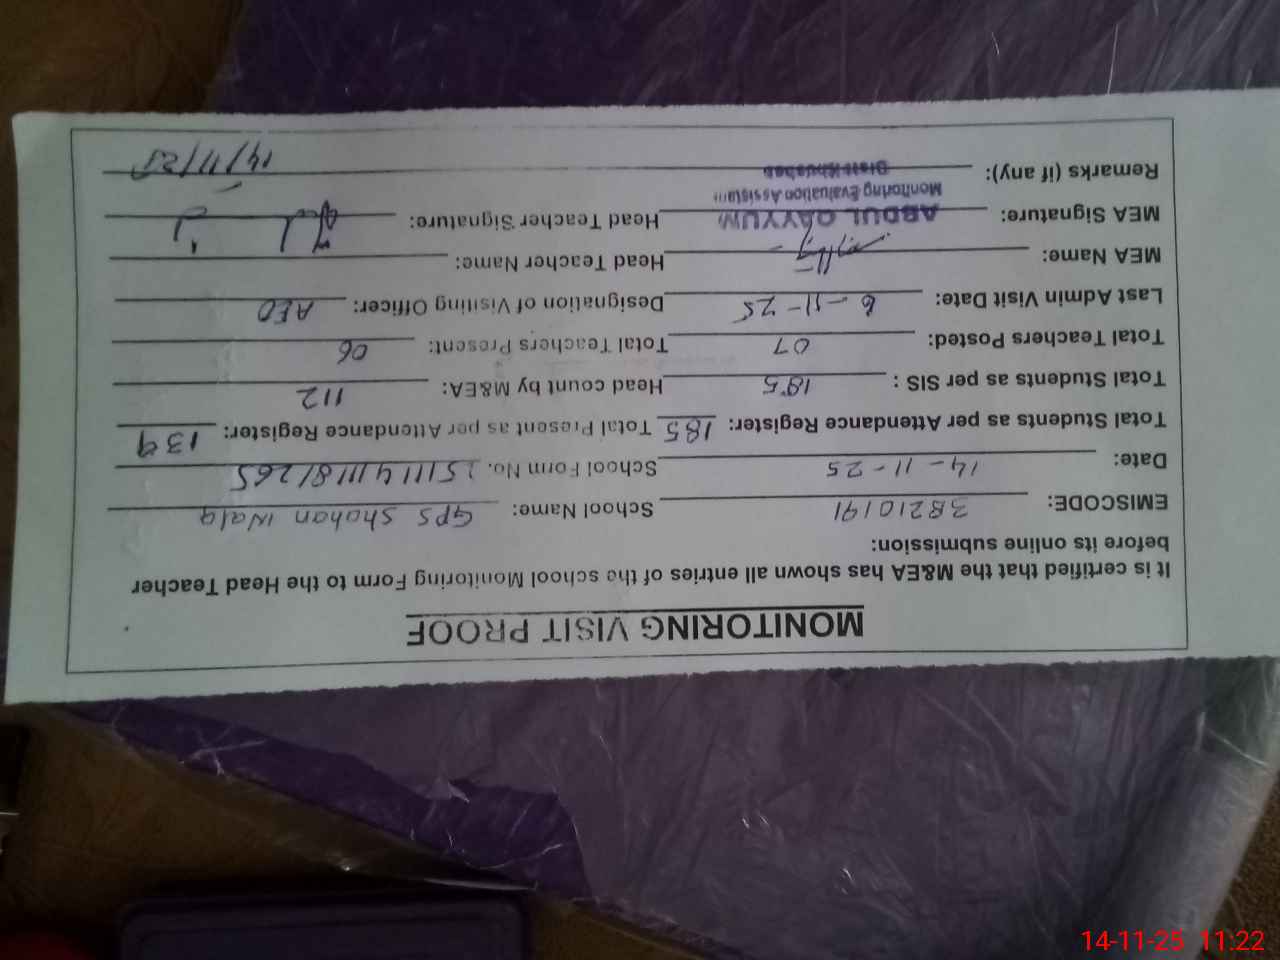 MONITORING VISIT PROOF
It is certified that the M&EA has shown all entries of the school Monitoring Form to the Head Teacher
before its online submission:
EMISCODE: 38210191 School Name: GPS Shahan Wala
Date: 14-11-25 School Form No.
Total Students as per Attendance Register: 185 Total Present as per Attendance Register: 139
Total Students as per SIS : 185 Head count by M&EA: 112
Total Teachers Posted: 07 Total Teachers Present: 06
Last Admin Visit Date: 6-11-25 Designation of Visiting Officer: AEO
MEA Name: Head Teacher Name:
MEA Signature: ABDUL QAYYUM Head Teacher Signature:
Monitoring Evaluation Assistant
Remarks (if any): Distt Khushab 14/11/25
14-11-25 11:22